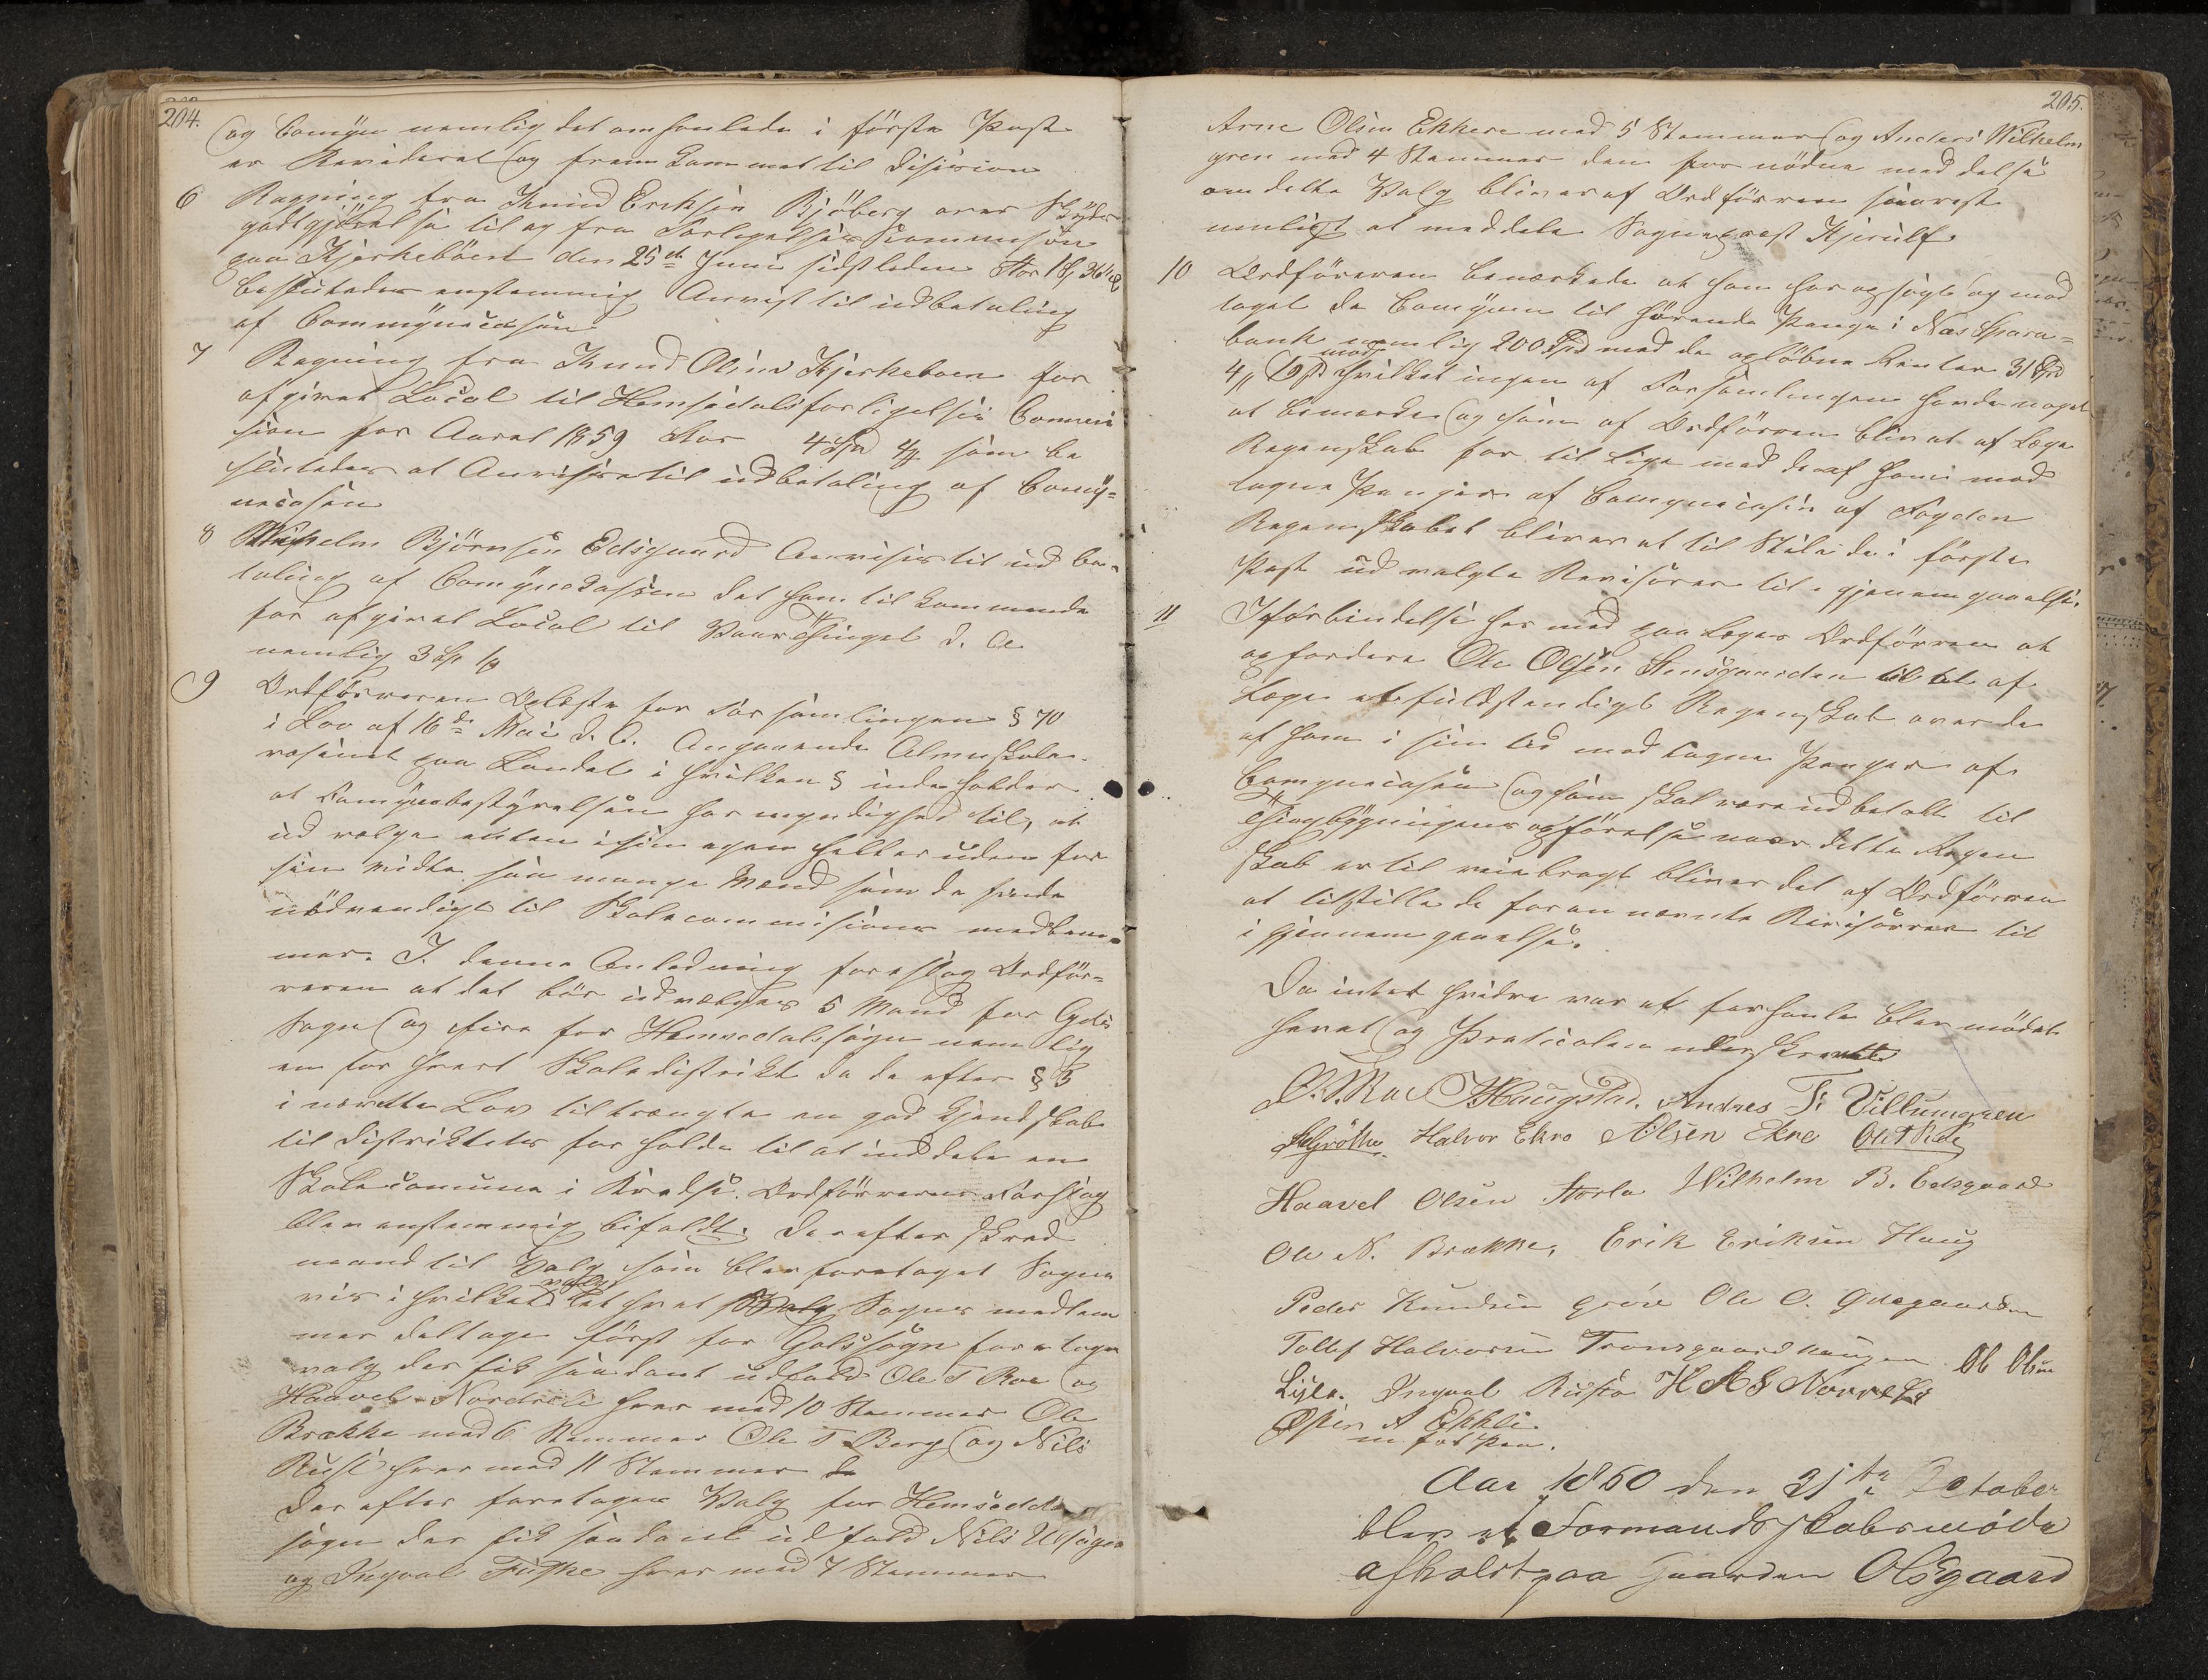 204.
og Comyn nemlig det omhanlede i första Post
er Revideret og frem kommet til Disision
6 Regning fra Knud Eriksen Bjöberg over Skyds
godtgjörelse til og fra Forligelses Commission
paa Kjerkeböen den 25de Juni sidstleden Stor
besluttedes enstemmig Anvist til udbetaling
af Commynecasen
7 Regning fra Knud Olsen Kjerkeboen for
afgivet Local til Hemsedals forligelses Commi
sion for Aaret 1859 Stor 4 Spd som be
sluttedes at Anvises til udbetaling af Comy=
necasen
8 Wilhelm Björnsen Edsgaard Anvises til ud be-
taling af Comynekassen det ham til kommende
for afgivet Local til Vaar Thinget d. A.
nemlig 3
9 Ordförreren Oplæste for Forsamlingen § 70
i Lov af 16de Mai d. A. Angaaende Almuskole-
væsenet paa Landet i hvilken § inde holder
at Comynebestyrelsen har myndighed til, at
ud vælge enten i sin egen heller uden for
sin midte saa mange Mænd som de finde
nödvendigt til Skolecommisions medlem-
mer. I denne Anledning foreslog Ordför=
reren at det bör udvælges 5 Mand for Gols
Sogn og fire for Hemsedals sogn nemlig
en for hvert Skoledistrikt da de efter § 3
i nævnte Lov tiltrængte en god Kjendskab
til Distriktets for holde til at inddele en
Skolecomune i Kredse. Ordförrerens Forslag
blev enstemmig bifaldt. Derefter skred
mand til Valg som blev foretaget Sogne
vis i hvilket valg hvert Sognes medlem
mer deltoge först for Gols sogn foretoges
valg der fik saadant udfald Ole T Roe og
Haavel Nordreli hver med 10 Stemmer Ole
Brække med 6 Stemmer Ole T. Berg og Nils
Rust hver med 11 Stemmer
Der efter foretoges Valg for Hemsedals
sogn der fik saadant udfald Nils Ulsager
og Ingval Fuske hver med 7 Stemmer
205.
Arne Olsen Ekkere med 5 Stemmer og Anders Wilhelm
gren med 4 Stemmer den for nödne med delse
om dette Valg bliver af Ordförreren snarest
muligst at meddele Sognepræst Kjerulf
10 Ordföreren bemærkede at han har opsagt og mod
taget de Comynen til hörende Penge i Næs Spare=
bank nemlig 200 Spd med de oplöbne Renter 31 Spd
mod hvilket ingen af Forsamlingen havde noget
at bemærke og som af Ordförren bliv at af Læge
Regenskab for til lige med de af ham mod
tagne Penger af Comynecasen af Fogden
Regenskabet bliver at til Stile de i första
Post ud valgte Revisorer til gjenemgaaelse.
11 I forbindelse her med paa Læges Ordförren at
opfordere Ole Olsen Stensgaarden til at af
Læge et fuldstendigt Regenskab over de
af ham i sin tid mod tagne Penger af
Comynecasen og som skal være udbetalt til
Thingbygningens opförelse naar dette Regen
skab er til veiebragt bliver det af Ordförren
at tilstille de foran nævnte Revisorrer til
i gjennemgaaelse.
Da intet hvidre var at forhanle blev mödet
hevet og Protocolen underskrevet
O. T. Roe Haugstad. Andres T. Villumgren
Halvor Ekro AOlsen Ekre
Haavel Olsen Storla Wilhelm B. Edsgaard
Ole N. Brække, Erik Eriksen Haug
Peder Knudsen gröve Ole O.
Tollef Halvorsen Tronsgaardhaugen Ole Olsen
Ingval Rusto
Østen A Ekkli
m for Pen.
Aar 1860 den 31te October
blev et Formandskabsmöde
afholdt paa Gaarden Olsgaard